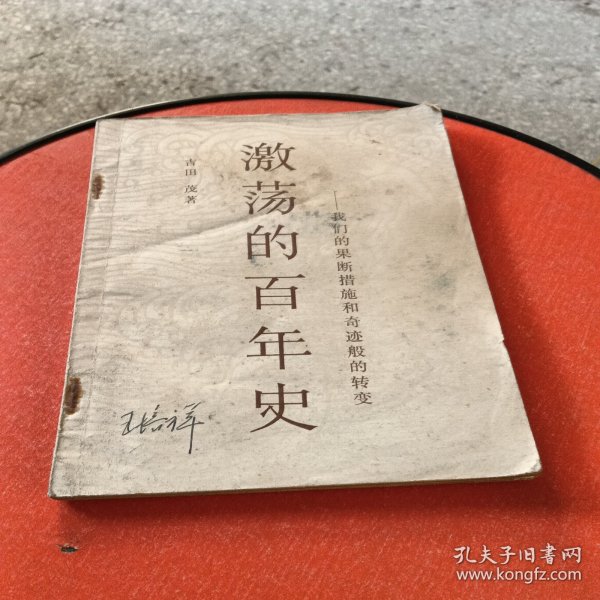 激荡的百年史
——我们的果断措施和奇迹般的转变
吉田 茂著
王培祥
孔夫子旧书网
www.kongfz.com